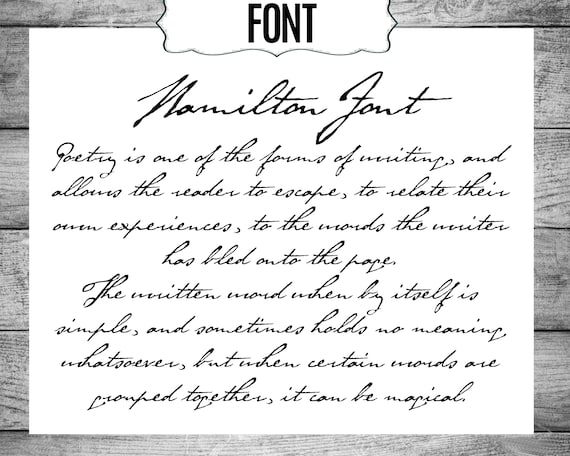 FONT
Hamilton Font
Poetry is one of the forms of writing, and
allows the reader to escape, to relate their
own experiences, to the words the writer
has bled onto the page.
The written word when by itself is
simple, and sometimes holds no meaning
whatsoever, but when certain words are
grouped together, it can be magical.